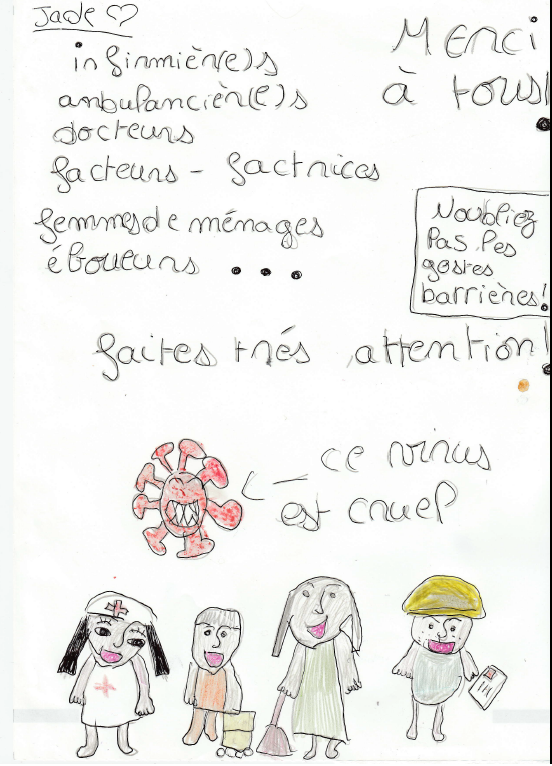 Jade ♡
infirmièr(e)s
ambulancièr(e)s
docteurs
facteurs - factrices
femmes de ménages
éboueurs ...
Merci
à tous!
Noubliez
Pas les
gestes
barrières!
faites trés attention!
ce virus
est cruel